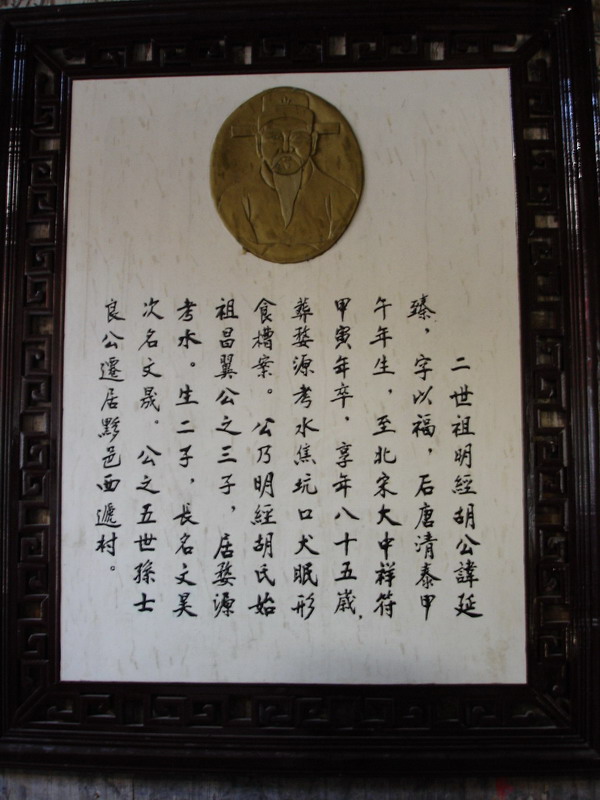 二世祖明經胡公諱延
臻，字以福，后唐清泰甲
午年生，至北宋大中祥符
甲寅年卒，享年八十五歲，
葬婺源考水焦坑口犬眠形
食槽案。公乃明經胡氏始
祖昌翼公之三子，居婺源
考水。生二子，長名文昊
次名文晟。公之五世孫士
良公遷居黟邑西遞村。